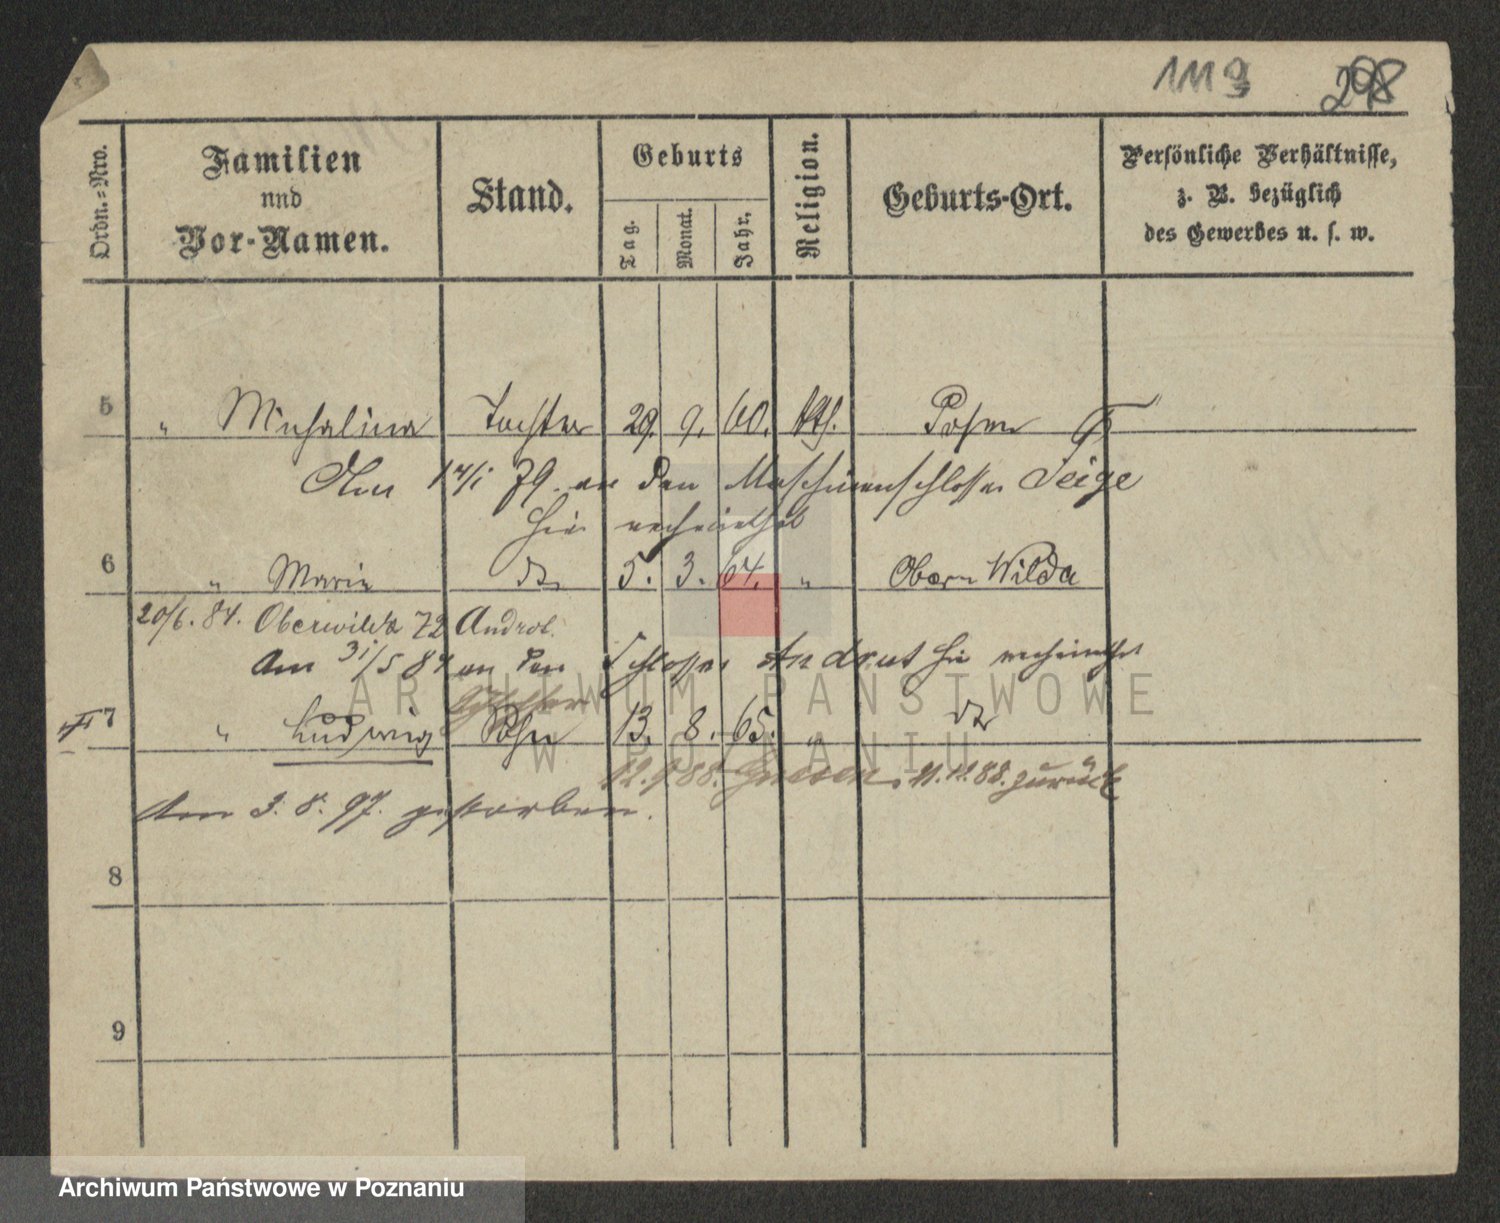 1119 298
Ordn.=Nro.
Familien
und
Vor-Namen.
Stand.
Geburts
Tag.
Monat.
Jahr.
Religion.
Geburts-Ort.
Persönliche Verhältnisse,
z. B. bezüglich
des Gewerbes u. s. w.
5 " Michalina Tochter 29. 9. 60. kth. Posen
Am 14/1 79 an den Maschinenschlosser Feige
hier verheirathet
6 " Marie do 5. 3. 64. " Obern Wilda
20/6. 84. Oberwilda 72 Androt.
Am 31/5 84 an den Schlosser Andrut hier verheirathet
7 " Ludwig Sohn 13. 8. 65. " do
Schlosser
12.9.88. Gnesen. 11.11.88. zurück
Am 3. 8. 97. gestorben.
8
9
ARCHIWUM PAŃSTWOWE
W POZNANIU
Archiwum Państwowe w Poznaniu